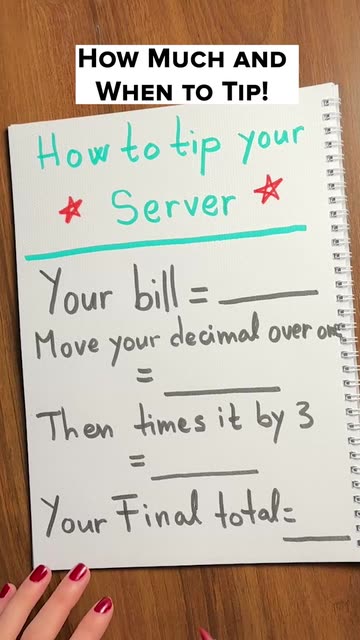 How Much and
When to Tip!
How to tip your
Server
Your bill =
Move your decimal over one
=
Then times it by 3
=
Your Final total=